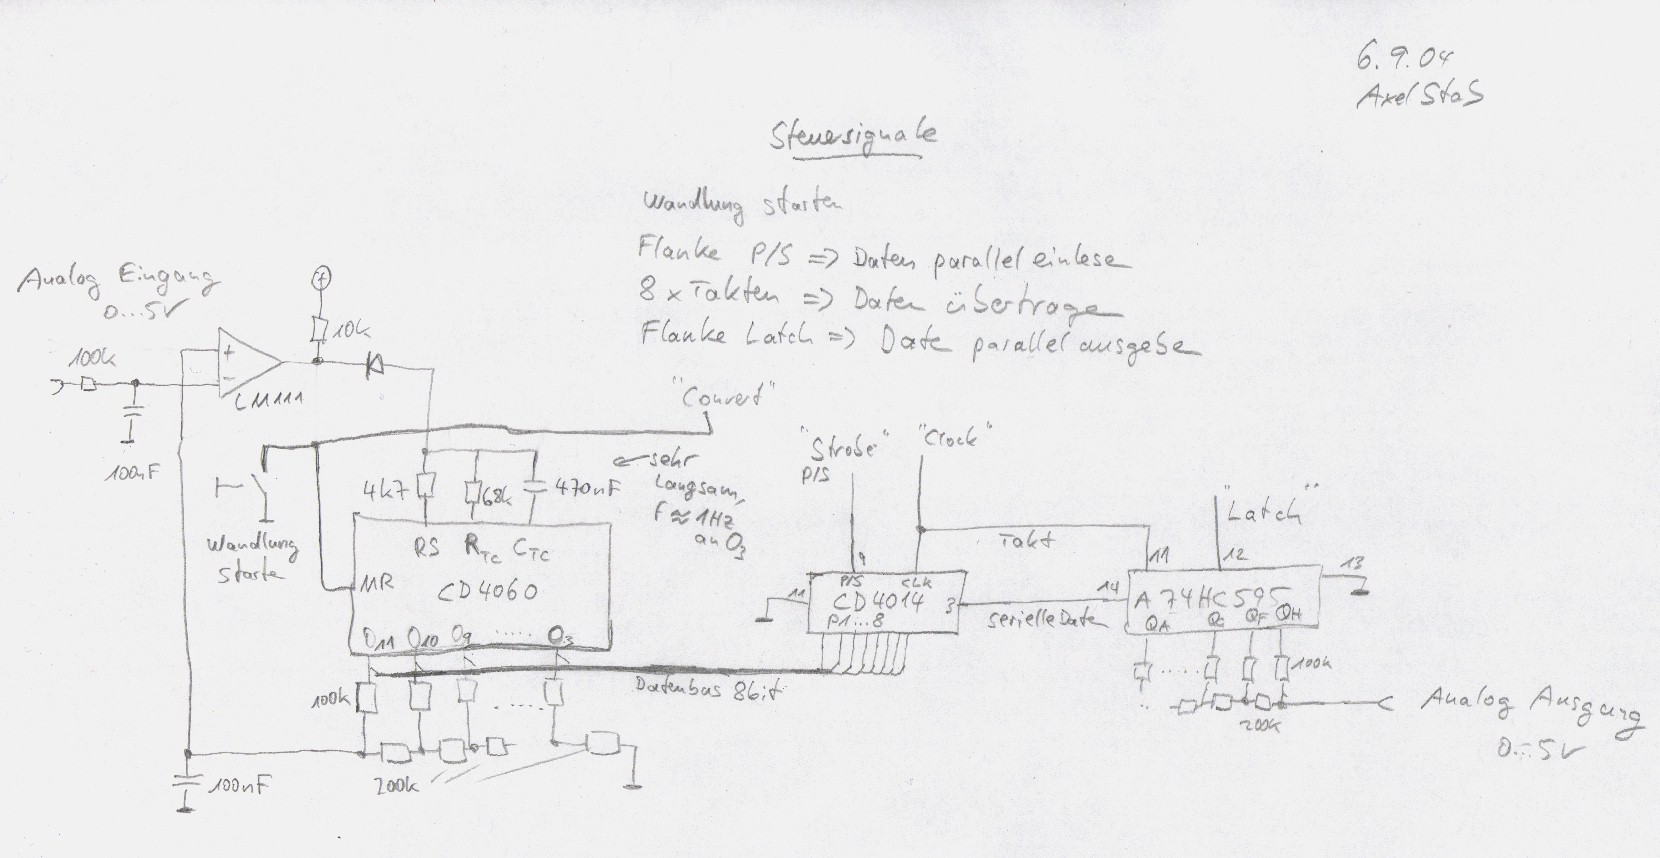 6.9.04
Axel StaS
Steuersignale
Wandlung starten
Flanke P/S => Daten parallel einlese
8 x Takten => Daten übertrage
Flanke Latch => Date parallel ausgebe
Analog Eingang
0...5V
100k
100nF
+
10k
+
-
LM111
"Convert"
4k7
68k
470nF
sehr
langsam,
f ≈ 1Hz
an O3
Wandlung
Starte
RS RTC CTC
MR
CD4060
O11 O10 O9 ..... O3
100k
.....
200k
100nF
Datenbus 8bit
"Strobe"
P/S
"Clock"
9
P/S CLK
11
CD4014
3
P1...8
Takt
serielle Daten
"Latch"
11
12
13
14
A 74HC595
QA QC QF QH
.....
100k
200k
Analog Ausgang
0...5V